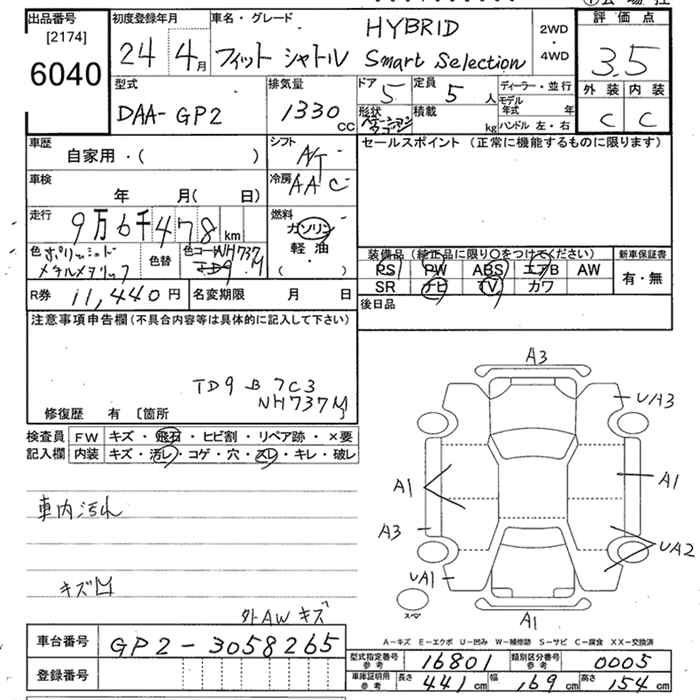 出品番号
[2174]
6040
初度登録年月
24 4月
車名・グレード
フィット シャトル
HYBRID
Smart Selection
2WD
・
4WD
評価点
3.5
外装 内装
C C
型式
DAA-GP2
排気量
1330
CC
ドア
5
定員
5 人
形状
積載
kg
ディーラー・並行
モデル
年式 年
ハンドル 左・右
車歴
自家用・( )
シフト
A/T
セールスポイント (正常に機能するものに限ります)
車検
年 月( 日)
冷房
AAC
走行
9万6千478km
燃料
ガソリン
軽油
( ・ )
色
ポリッシュド
メタルメタリック
色替
色コード NH737M
TD9
装備品 (純正品に限り〇をつけてください)
PS PW ABS エアB AW
SR ナビ TV カワ
新車保証書
有・無
R券 11,440円
名変期限 月 日
後日品
注意事項申告欄(不具合内容等は具体的に記入して下さい)
TD9 B 7C3
NH737M
修復歴 有 〔箇所 〕
検査員
記入欄
FW キズ・飛石・ヒビ割・リペア跡・×要
内装 キズ・汚レ・コゲ・穴・スレ・キレ・破レ
車内汚れ
キズ
外AWキズ
A3
UA3
A1
A1
A3
UA2
UA1
A1
スペ
A-キズ E-エクボ U-凹み W-補修跡 S-サビ C-腐食 XX-交換済
車台番号
GP2-3058265
登録番号
型式指定番号
参考
16801
類別区分番号
参考
0005
車庫証明用
参考
長さ 441cm
幅 169cm
高さ 154cm